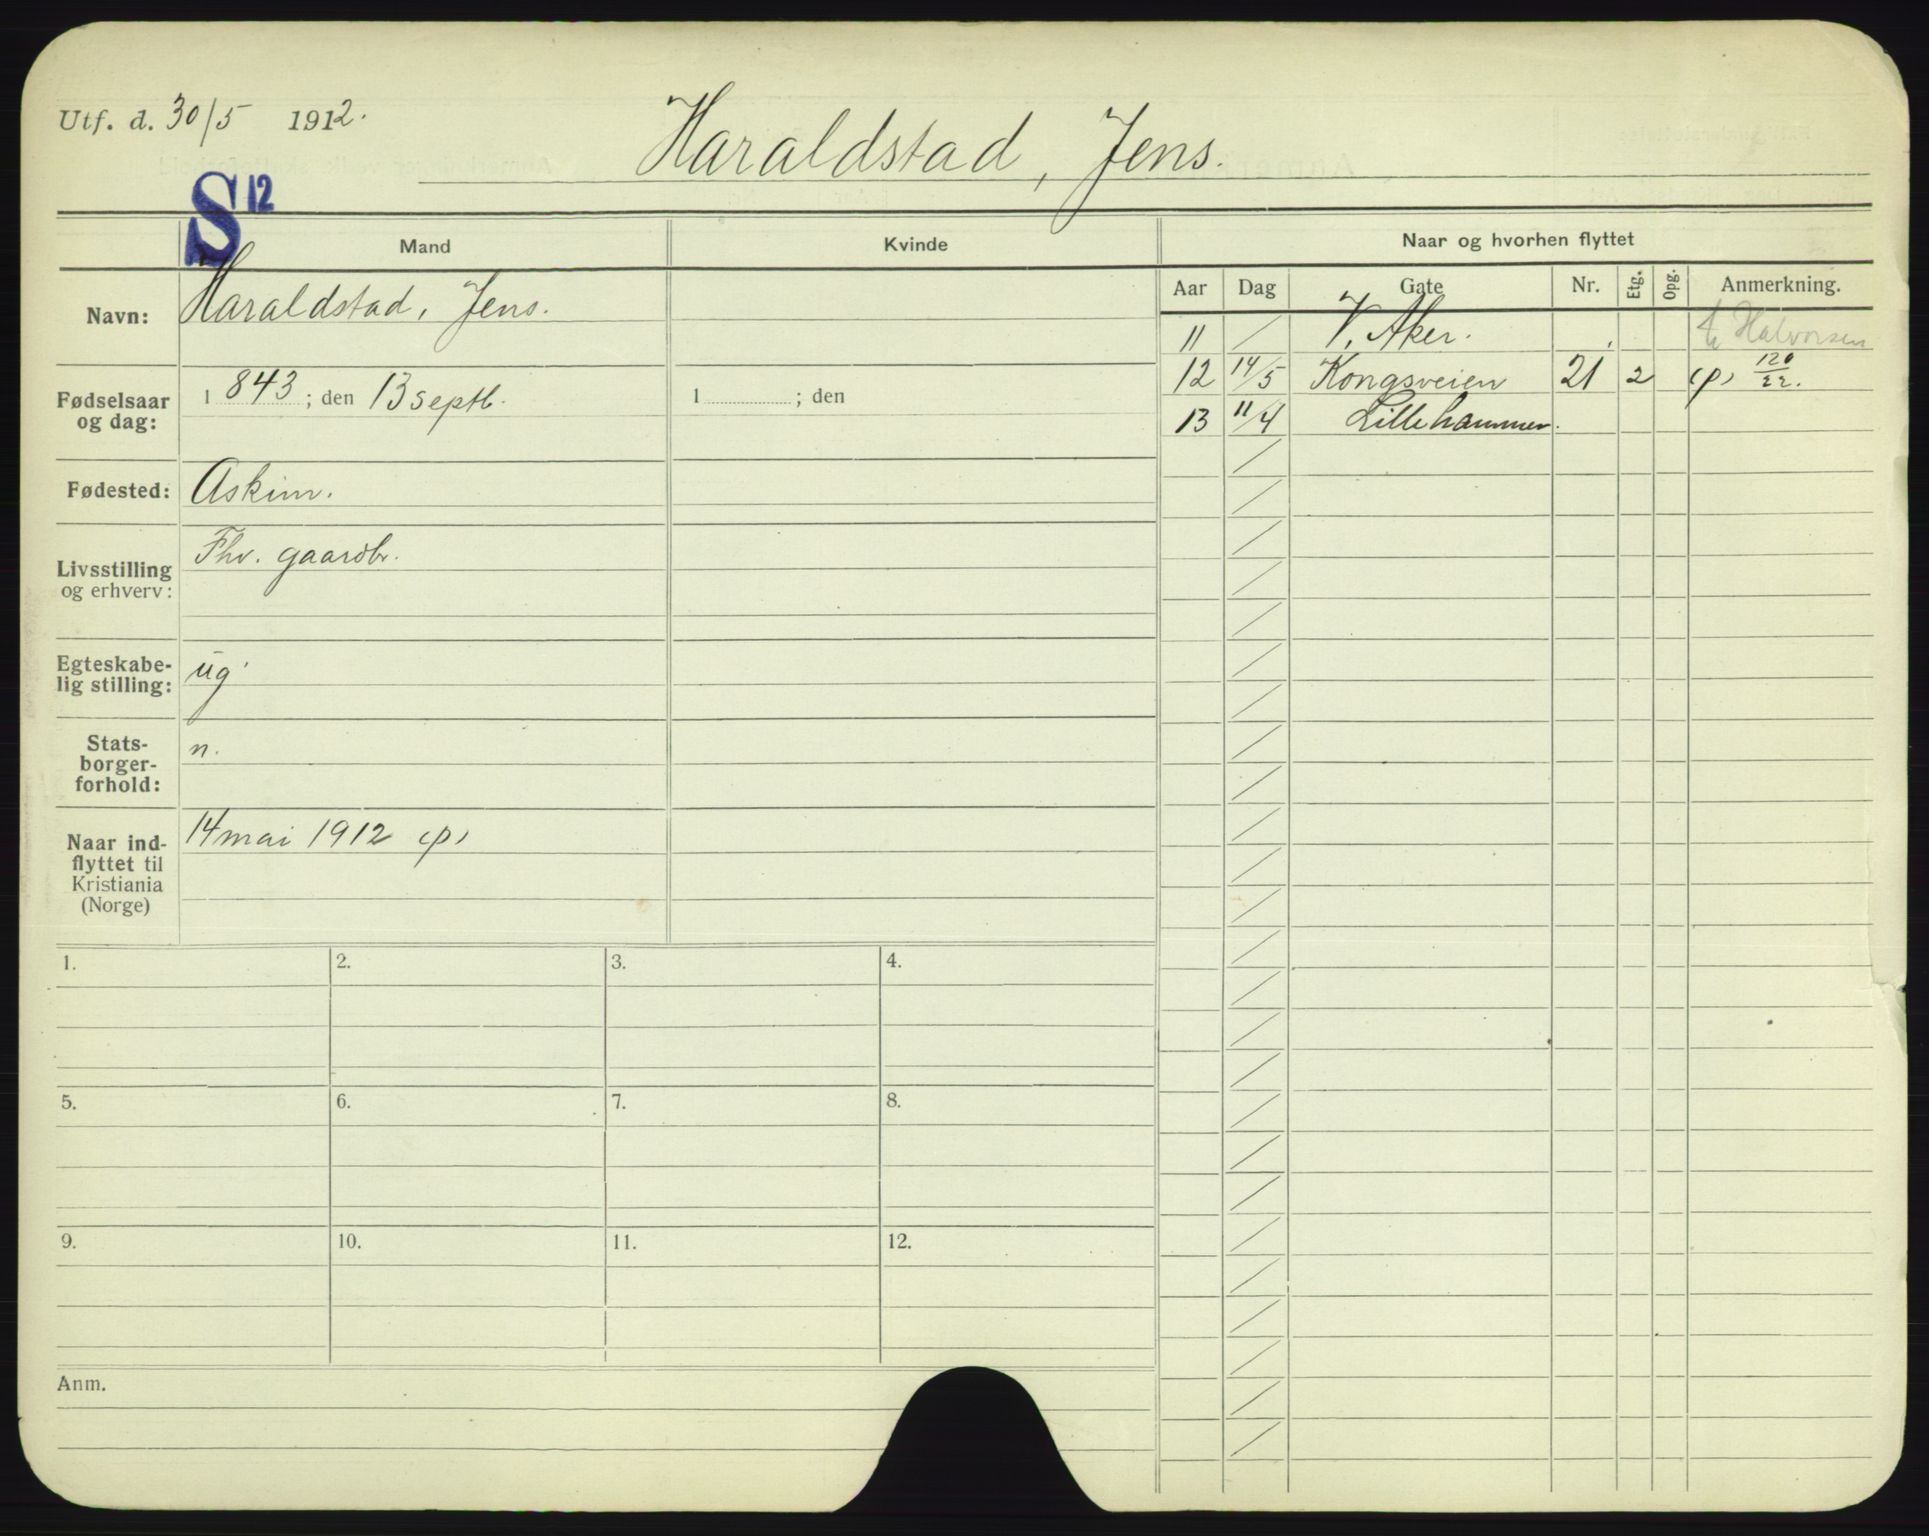 Utf. d. 30/5 1912.
Haraldstad, Jens.
S 12
Mand
Kvinde
Navn: Haraldstad, Jens.
Fødselsaar og dag: 1843; den 13 septb. 1 ; den
Fødested: Askim.
Livsstilling og erhverv: Fhv. gaardbr.
Egteskabe-
lig stilling: ug.
Stats-
borger-
forhold: n.
Naar ind-
flyttet til
Kristiania
(Norge)
14 mai 1912 (p)
1. 2. 3. 4.
5. 6. 7. 8.
9. 10. 11. 12.
Anm.
Naar og hvorhen flyttet
Aar Dag Gate Nr. Etg. Opg. Anmerkning.
11 / V. Aker. Halvorsen
12 14/5 Kongsveien 21 2 (p) 120/22.
13 11/4 Lillehammer.